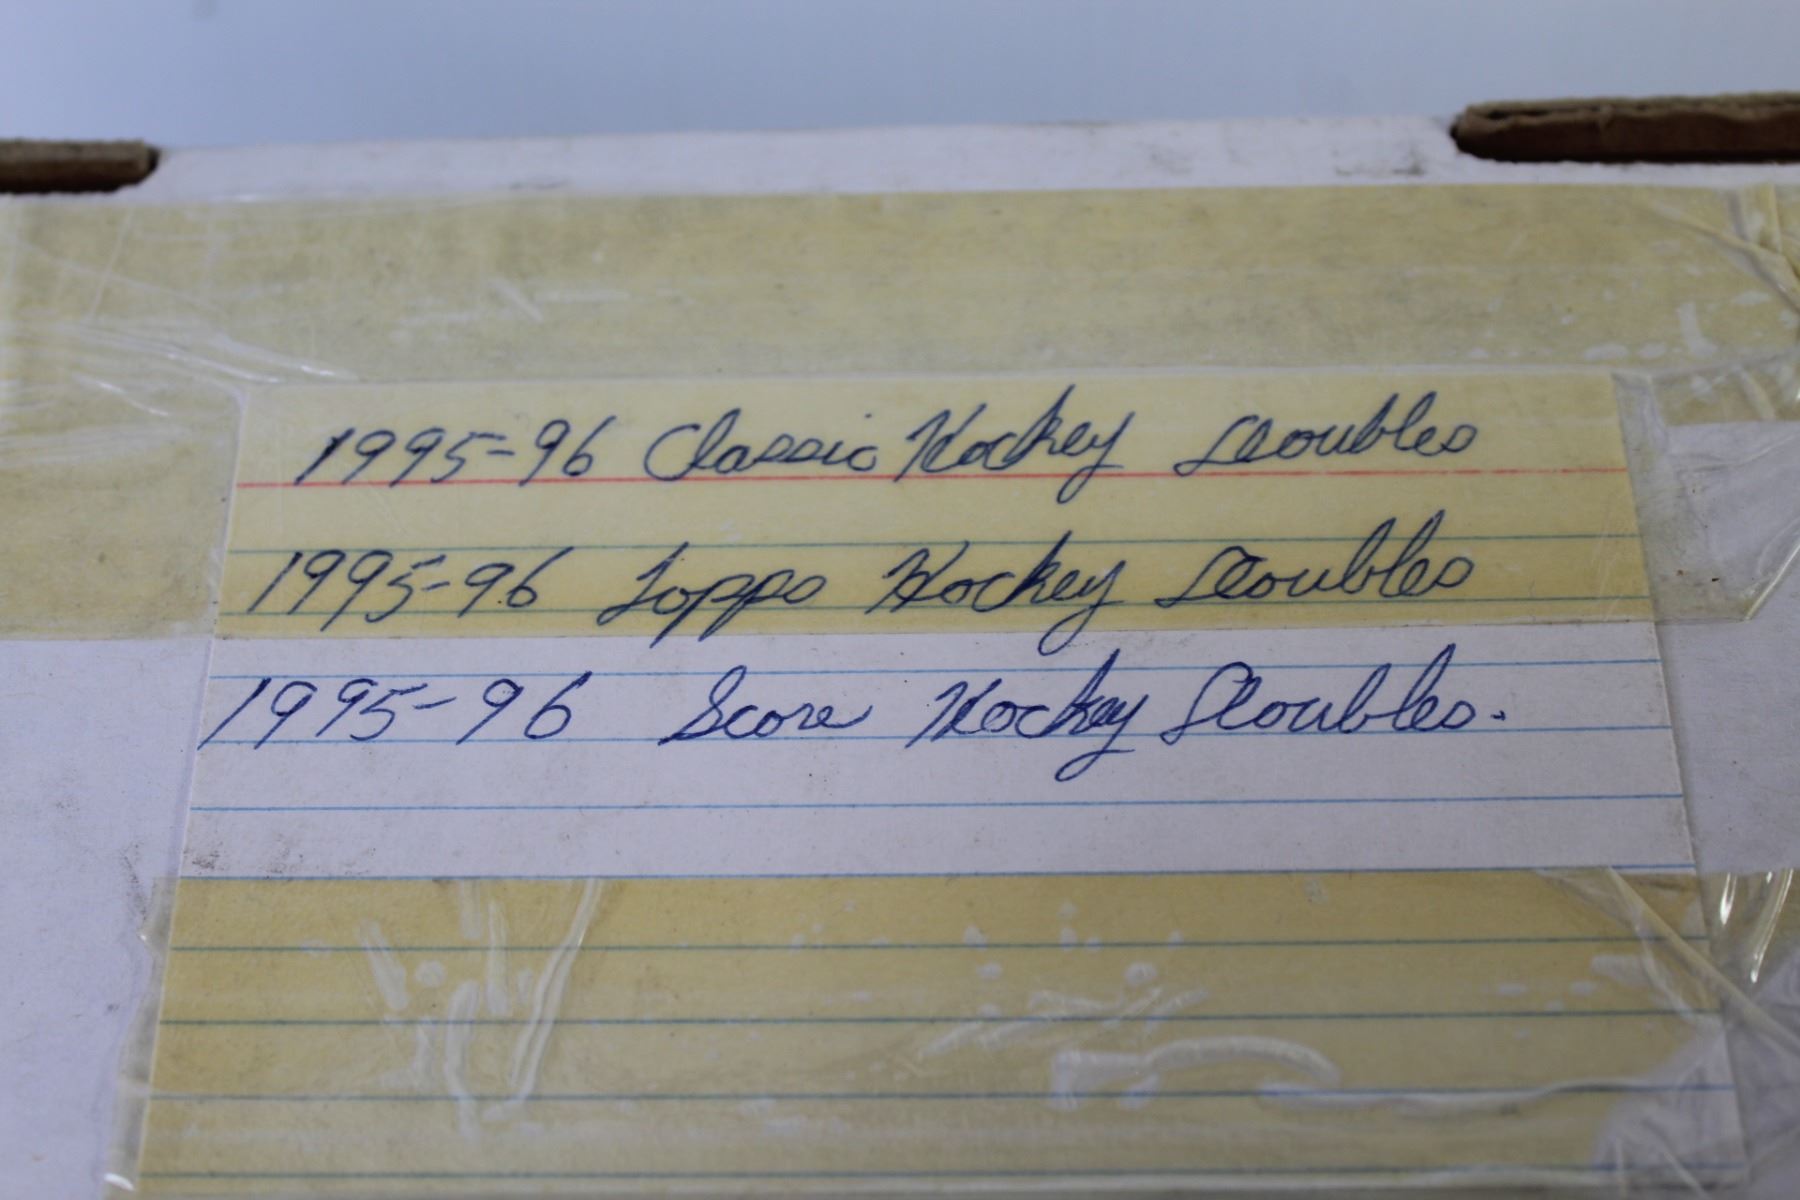 1995-96 Classic Hockey Doubles
1995-96 Topps Hockey Doubles
1995-96 Score Hockey Doubles.